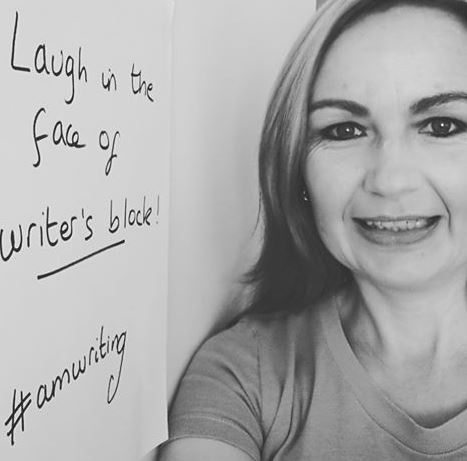 Laugh in the
face of
writer's block!
#amwriting